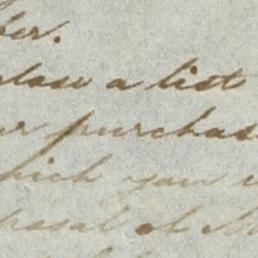 ber.
close a list
ur purchas
hich you
posal of